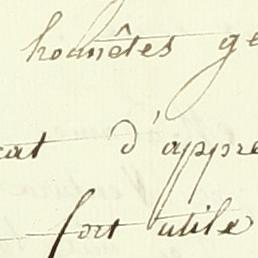 honnêtes ge
cat d'appre
fort utile